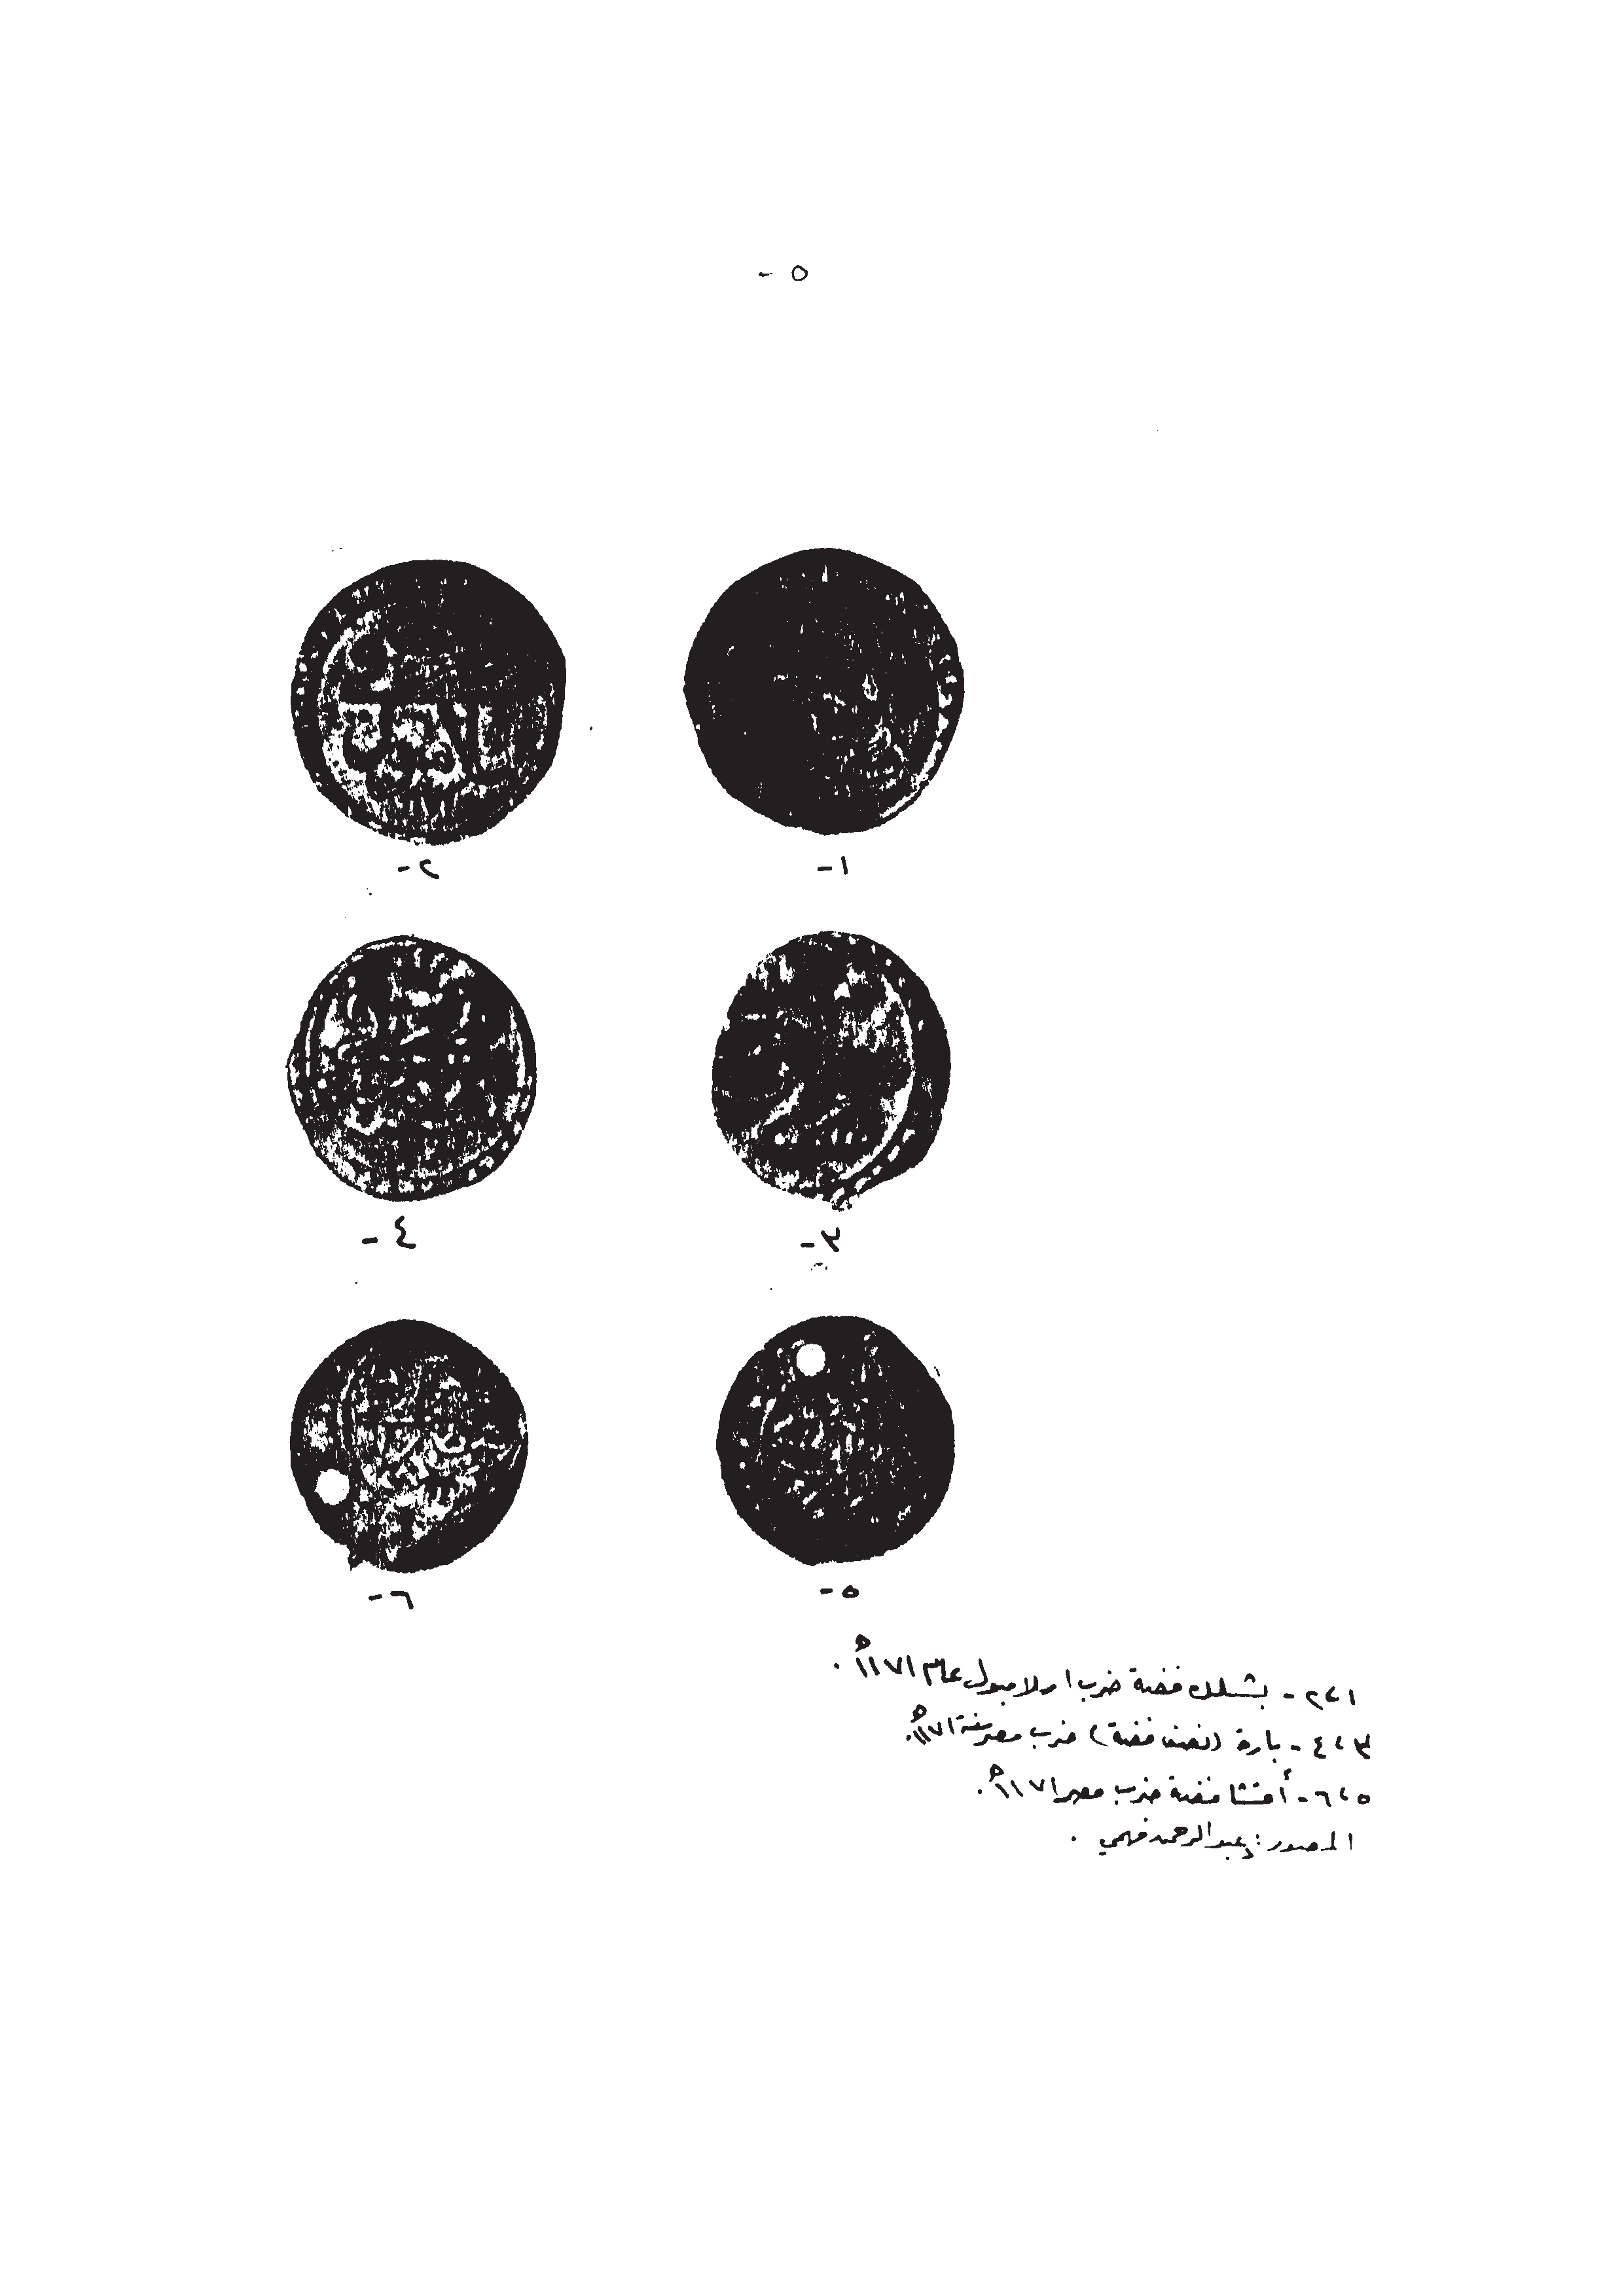 ٥ -
١- ٢-
٣- ٤-
٥- ٦-
١،٢ - بشلك فضة ضرب اسلامبول عام ١١٧١هـ.
٣،٤ - بارة (نصف فضة) ضرب مصر سنة ١١٧١هـ.
٥،٦ - أقشا فضة ضرب مصر ١١٧١هـ.
المصدر: د عبدالرحمن فهمي .